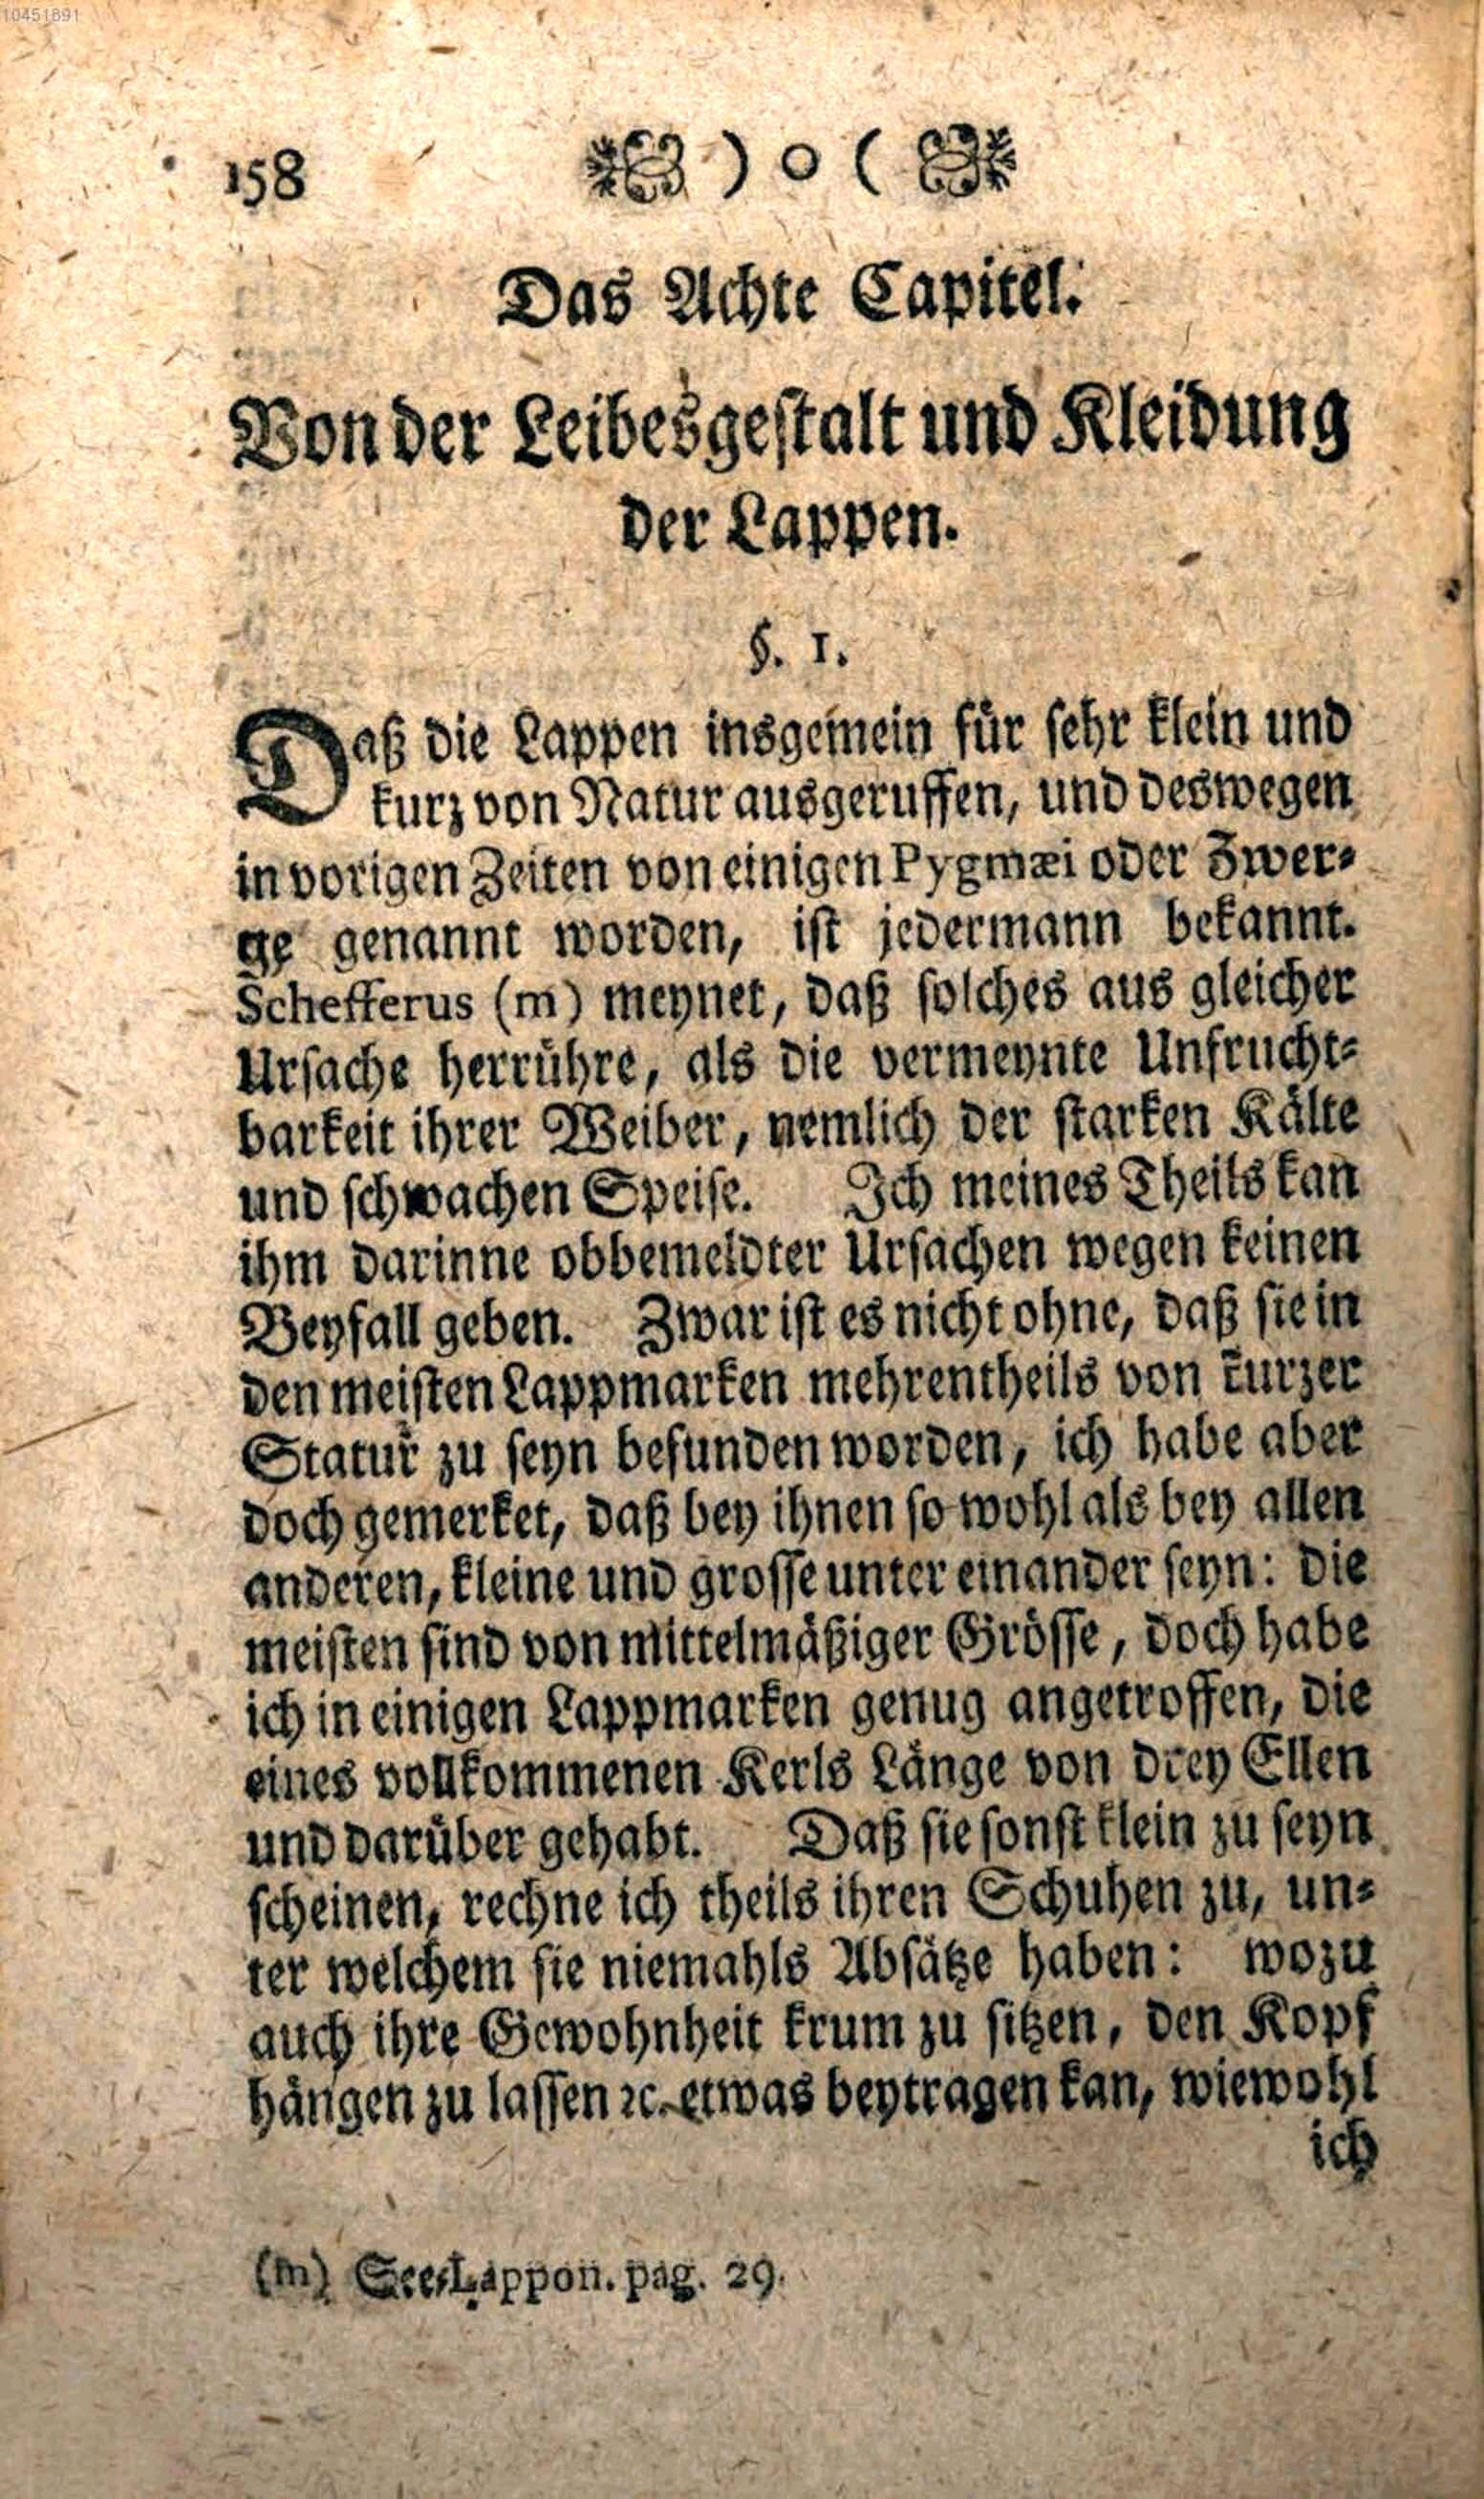 10451891
158 ) o (
Das Achte Capitel.
Von der Leibesgestalt und Kleidung
der Lappen.
§. 1.
Daß die Lappen insgemein für sehr klein und
kurz von Natur ausgeruffen, und deswegen
in vorigen Zeiten von einigen Pygmæi oder Zwer-
ge genannt worden, ist jedermann bekannt.
Schefferus (m) meynet, daß solches aus gleicher
Ursache herrühre, als die vermeynte Unfrucht-
barkeit ihrer Weiber, nemlich der starken Kälte
und schwachen Speise. Ich meines Theils kan
ihm darinne obbemeldter Ursachen wegen keinen
Beyfall geben. Zwar ist es nicht ohne, daß sie in
den meisten Lappmarken mehrentheils von kurzer
Statur zu seyn befunden worden, ich habe aber
doch gemerket, daß bey ihnen so wohl als bey allen
anderen, kleine und grosse unter einander seyn: die
meisten sind von mittelmäßiger Grösse, doch habe
ich in einigen Lappmarken genug angetroffen, die
eines vollkommenen Kerls Länge von drey Ellen
und darüber gehabt. Daß sie sonst klein zu seyn
scheinen, rechne ich theils ihren Schuhen zu, un-
ter welchem sie niemahls Absätze haben: wozu
auch ihre Gewohnheit krum zu sitzen, den Kopf
hängen zu lassen ꝛc. etwas beytragen kan, wiewohl
ich
(m) See Lappon. pag. 29.